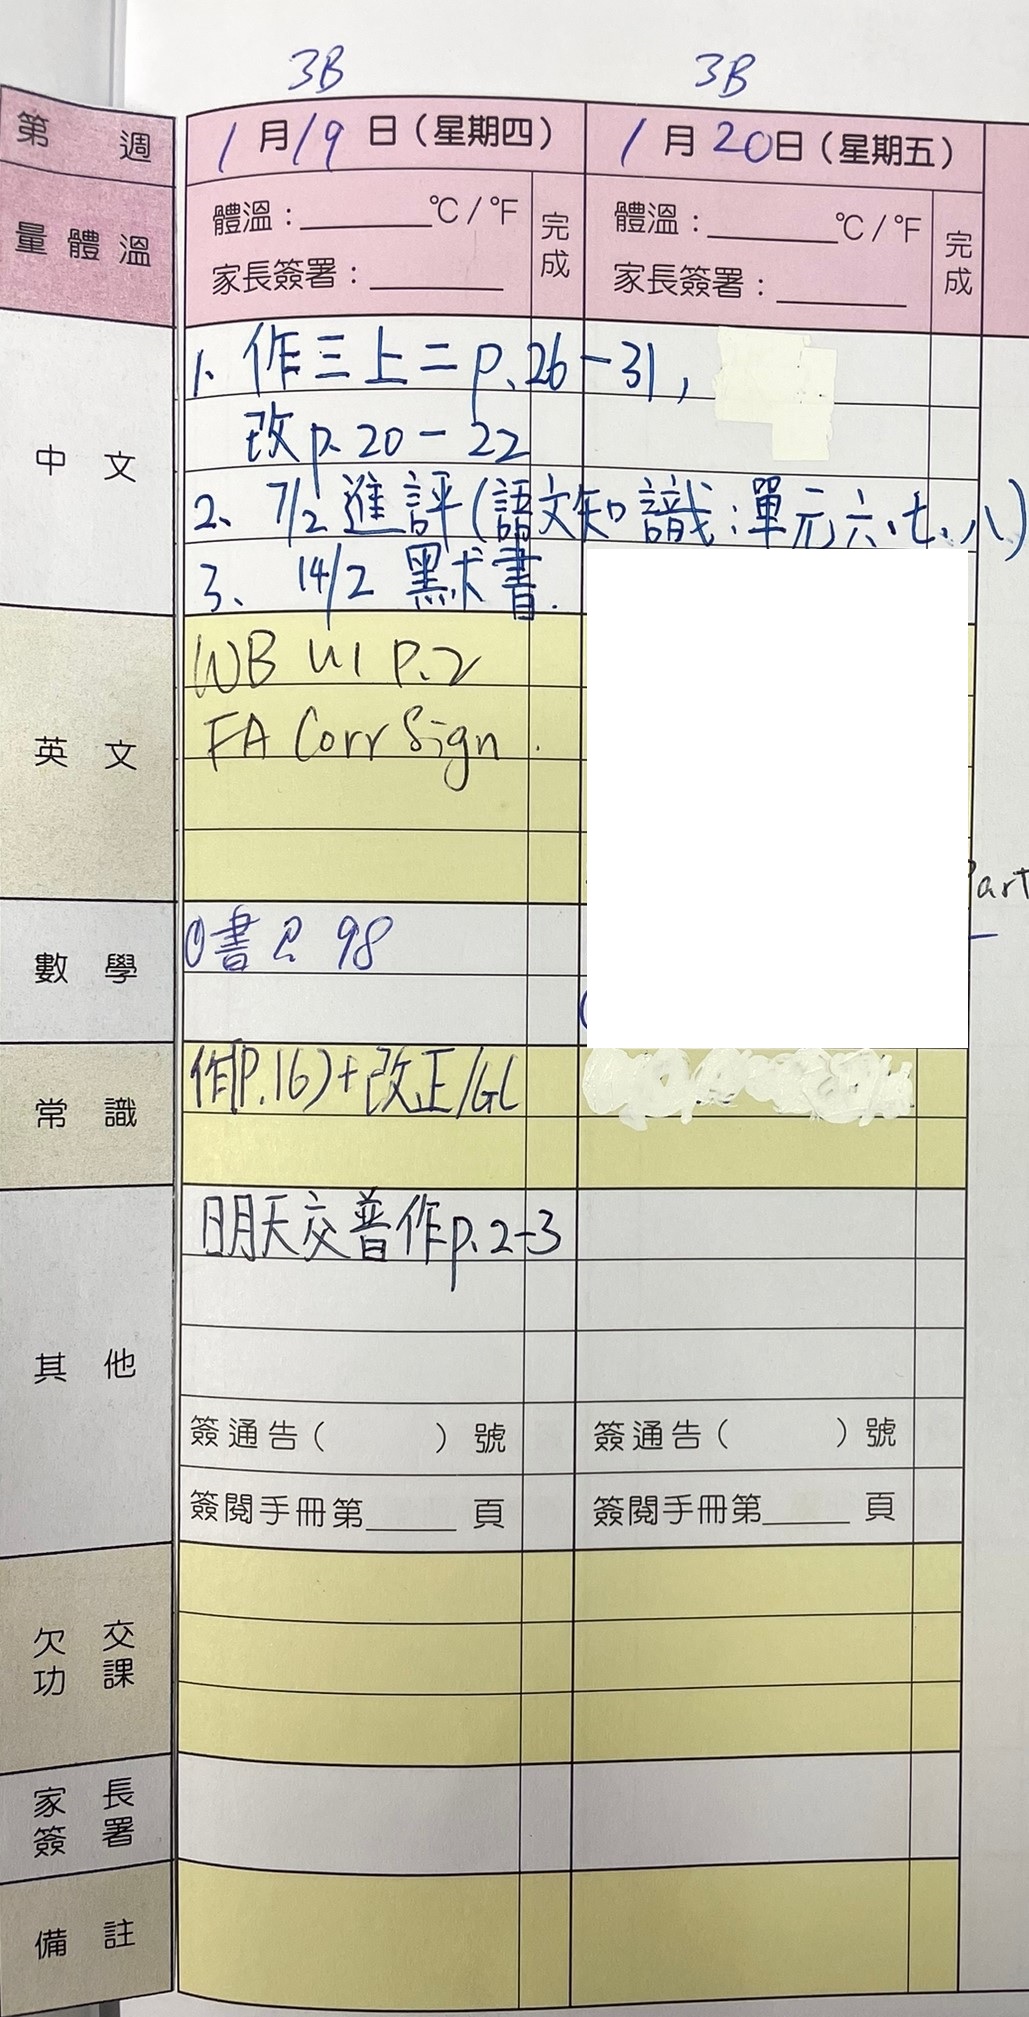 3B 3B
第 週 1月19日(星期四) 1月20日(星期五)
量體溫 體溫:______℃/℉ 完成 體溫:______℃/℉ 完成
家長簽署:______ 家長簽署:______
中文 1、作三上二p.26-31,
改p.20-22
2、7/2進評(語文知識:單元六、七、八)
3、14/2 默書.
英文 WB U1 P.2
FA Corr Sign.
Part
數學 ①書P. 98
常識 作(P.16)+改正/GL
其他 明天交普作p.2-3
簽通告( )號 簽通告( )號
簽閱手冊第____頁 簽閱手冊第____頁
欠交功課
家長簽署
備註